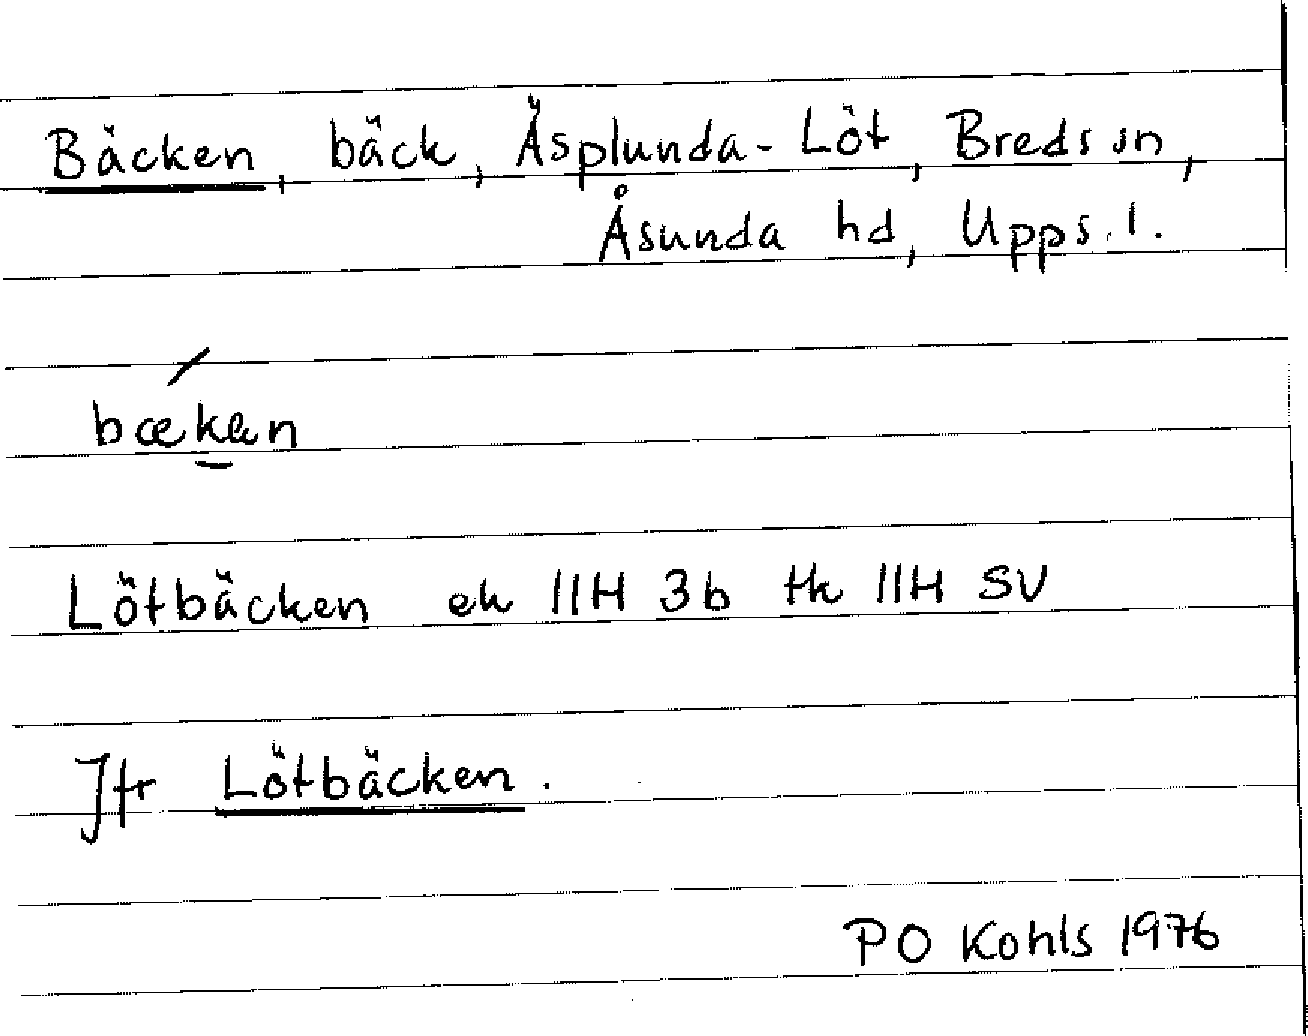 Bäcken, bäck, Äsplunda-Löt, Breds sn,
Åsunda hd, Upps. l.
bækən
Lötbäcken ek 11H 3b tk 11H SV
Jfr Lötbäcken.
PO Kohls 1976